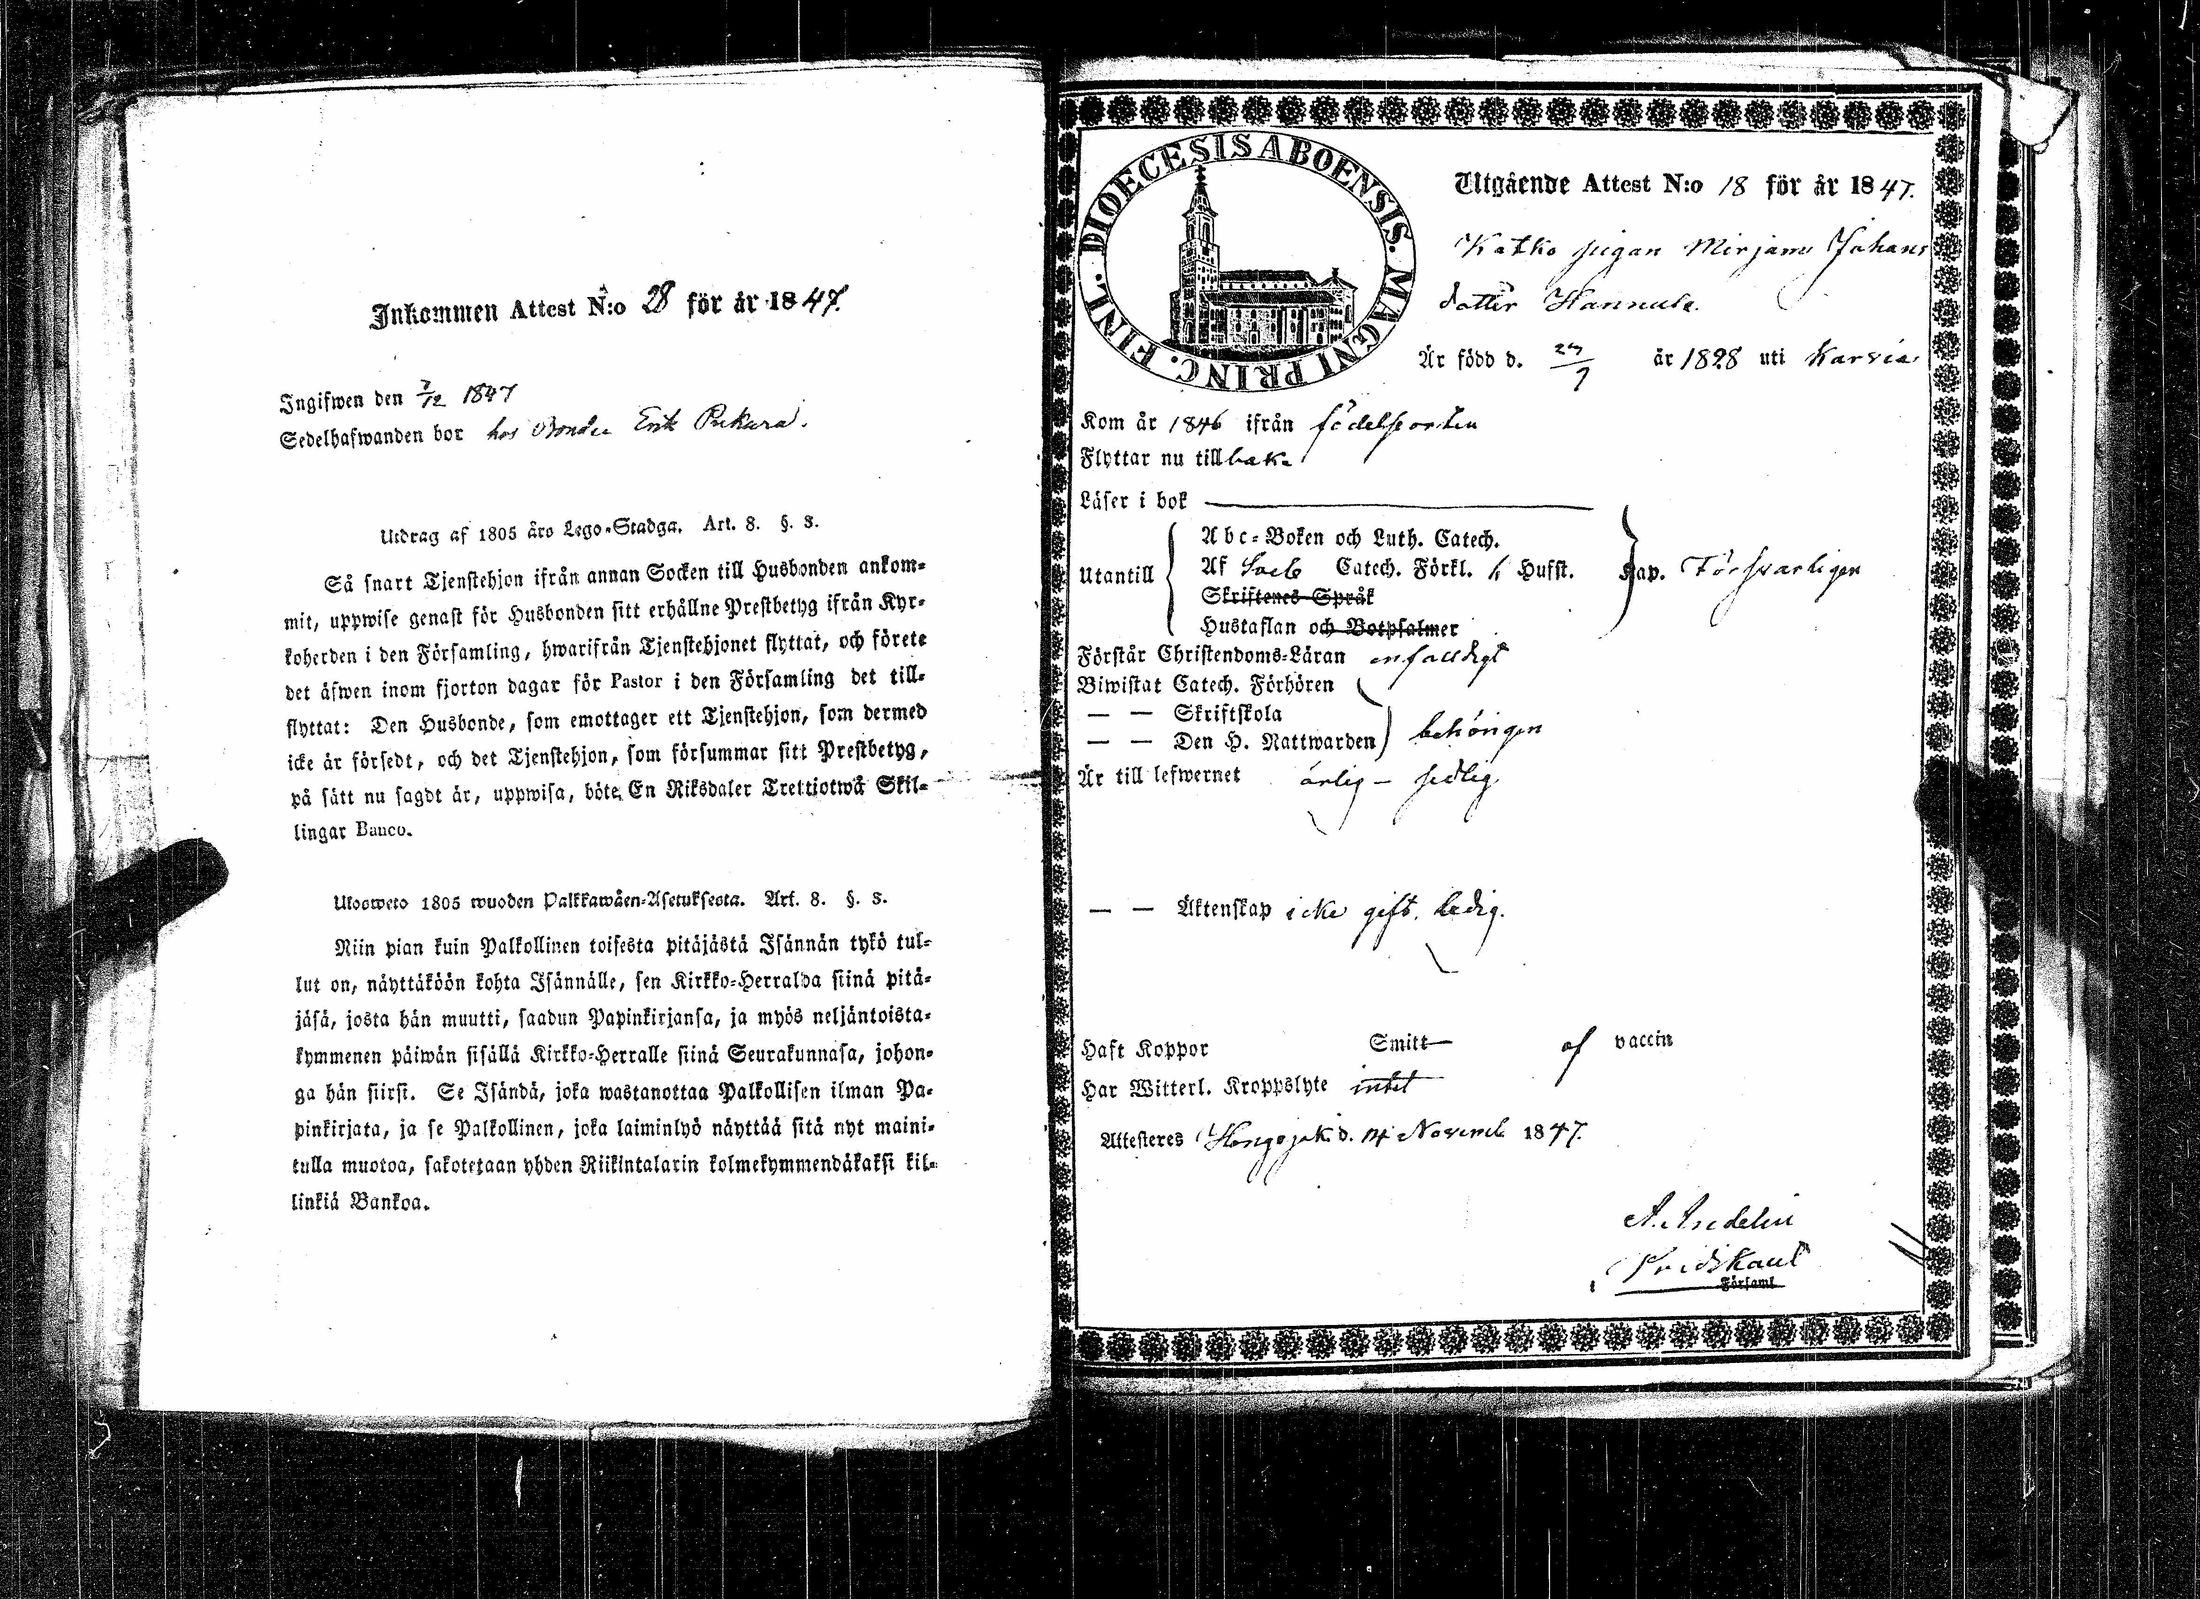 Inkommen Attest N:o 28 för år 1847.
Ingifwen den 7/12 1847
Sedelhafwanden bor hos Bonden Erik
Utdrag af 1805 års Lego-Stadga. Art. 8. §. 3.
Så snart Tjenstehjon ifrån annan Socken till Husbonden ankom-
mit, uppwise genast för Husbonden sitt erhållne Prestbetyg ifrån Kyr-
koherden i den Församling, hwarifrån Tjenstehjonet flyttat, och förete
det äfwen inom fjorton dagar för Pastor i den Församling det till-
flyttat: Den Husbonde, som emottager ett Tjenstehjon, som dermed
icke är försedt, och det Tjenstehjon, som försummar sitt Prestbetyg,
på sätt nu sagdt är, uppwisa, böte En Riksdaler Trettiotwå Skil-
lingar Banco.
Ulosweto 1805 wuoden Palkkawäen-Asetuksesta. Art. 8. §. 3.
Niin pian kuin Palkollinen toisesta pitäjästä Isännän tykö tul-
lut on, näyttäköön kohta Isännälle, sen Kirkko-Herralda siinä pitä-
jäsä, josta hän muutti, saadun Papinkirjansa, ja myös neljäntoista-
kymmenen päiwän sisällä Kirkko-Herralle siinä Seurakunnasa, johon-
ga hän siirsi. Se Isändä, joka wastanottaa Palkollisen ilman Pa-
pinkirjata, ja se Palkollinen, joka laiminlyö näyttää sitä nyt maini-
tulla muotoa, sakotetaan yhden Riikintalarin kolmekymmendäkaksi kil-
linkiä Bankoa.
DIOECESIS ABOENSIS. MAGNI PRINC. FINL.
Utgående Attest N:o 18 för år 1847.
pigan Mirjam Johans
dotter Hannula.
Är född d. år 1828 uti Karvia
Kom år 1846 ifrån födelseorten
Flyttar nu tillbaka
Läser i bok
Utantill
Abc-Boken och Luth. Catech.
Af Catech. Förkl. Husft.
Skriftenes Språk
Hustaflan och Botpsalmer
Kap. Försvarligen
Förstår Christendoms-Läran enfaldigt
Biwistat Catech. Förhören
— — Skriftskola
— — Den H. Nattwarden behörigen
Är till lefwernet ärlig – sedlig.
— — Äktenskap icke gift. ledig.
Haft Koppor Smitt af vaccin
Har Witterl. Kroppslyte intet
Attesteres d. Novemb 1847.
A. Andelin
Församl